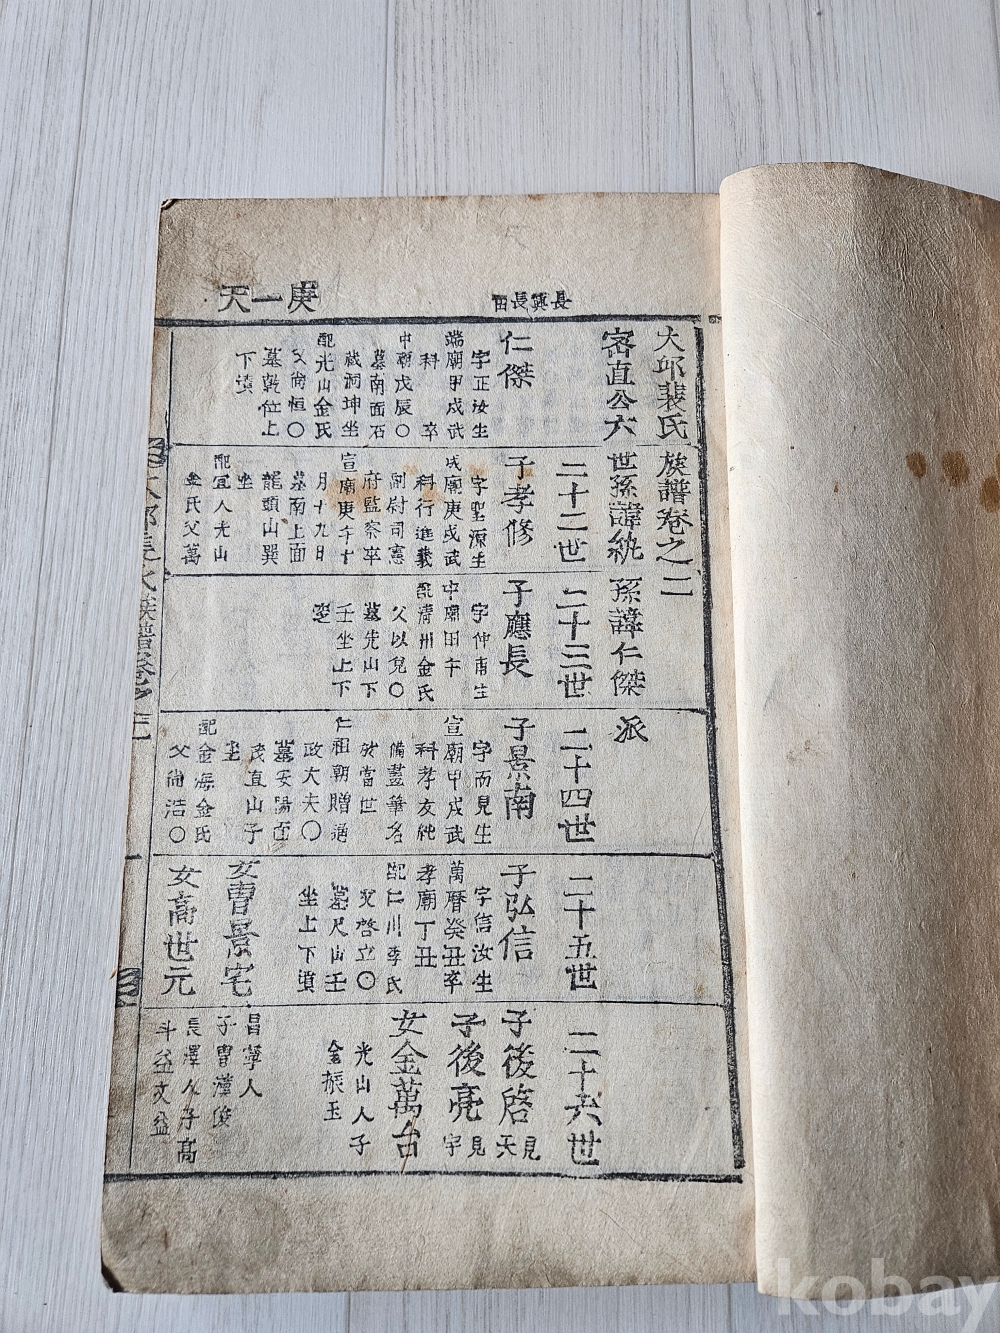 庚一天
長興長田
大邱裴氏族譜卷之二
密直公六世孫諱紈孫諱仁傑派
仁傑
字正汝生
端廟甲戌武
科卒
中廟戊辰〇
墓南面石
蔵洞坤坐
配光山金氏
父尙恒〇
墓乾位上
下墳
二十二世
子孝修
字聖源生
成廟庚戌武
科行進義
副尉司憲
府監察卒
宣廟庚午十
月十九日
墓南上面
龍頭山巽
坐
配宜人光山
金氏父萬
二十三世
子應長
字仲甫生
中廟田午
配淸州金氏
父以兌〇
墓先山下
壬坐上下
塋
二十四世
子景南
字而見生
宣廟甲戌武
科孝友純
備藎筆名
於當世
仁祖朝贈通
政大夫〇
墓安陽面
茂直山子
坐
配金海金氏
父尙浩〇
二十五世
子弘信
字信汝生
萬曆癸丑卒
孝廟丁丑
配仁川李氏
父啓立〇
墓尺山壬
坐上下墳
女曺景宅
女高世元
二十六世
子後啓 見天
子後亮 見宇
女金萬台
光山人子
金振玉
昌寧人
子曺漢俊
長澤人子高
斗益文益